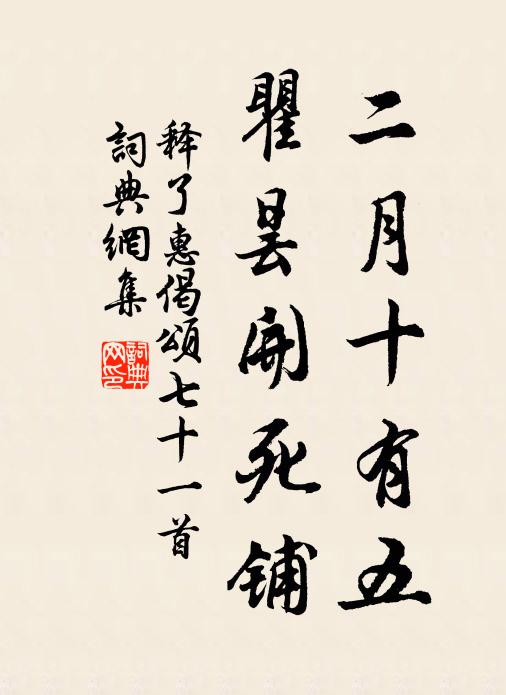 二月十有五
瞿昙開死铺
释了惠偈頌七十一首
詞典網集
詞典網印